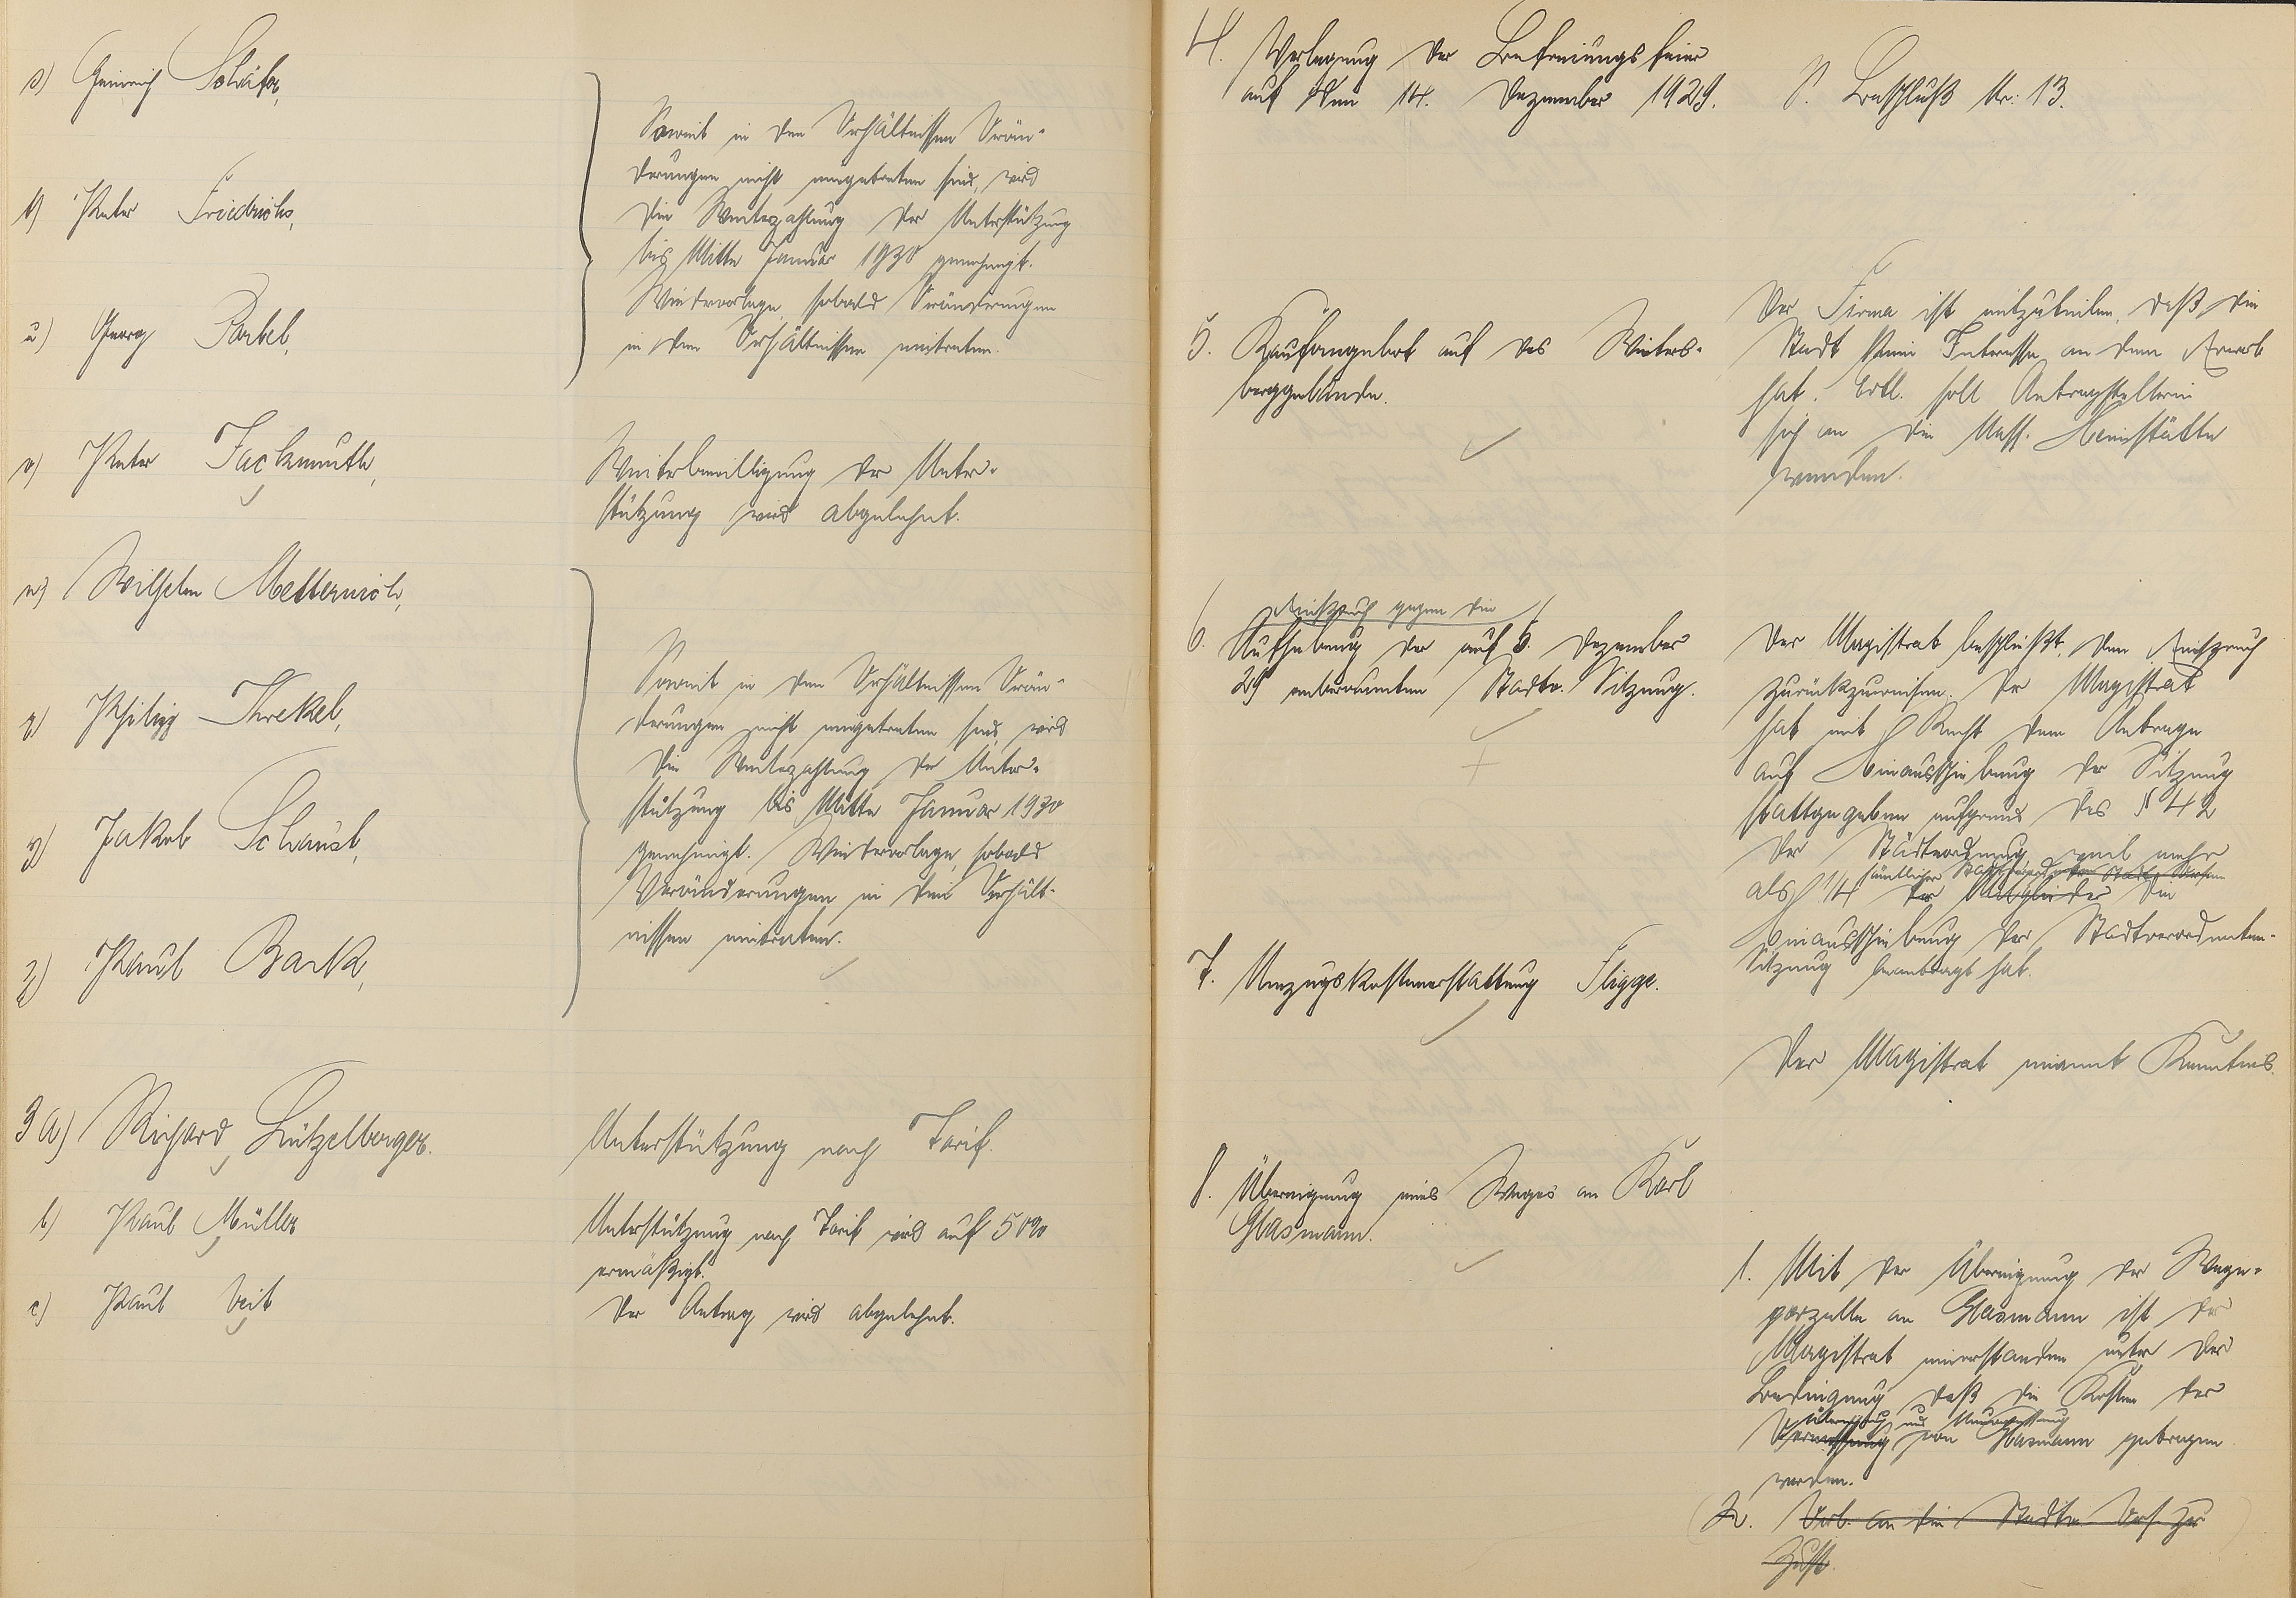 s) Heinrich Schäfer,
t) Peter Friedrichs,
u) Georg Barbel,
Soweit in den Verhältnissen Verän-
derungen nicht eingetreten sind, wird
die Weiterzahlung der Unterstützung
bis Mitte Januar 1930 genehmigt.
Wiedervorlage, sobald Veränderungen
in den Verhältnissen eintreten.
v) Peter Fackmuth,
Weiterbewilligung der Unter-
stützung wird abgelehnt.
w) Wilhelm Metternich,
x) Philipp Threkel,
y) Jakob Schaust,
z) Paul Bark,
Soweit in den Verhältnissen Verän-
derungen nicht eingetreten sind, wird
die Weiterzahlung der Unter-
stützung bis Mitte Januar 1930
genehmigt. Wiedervorlage, sobald
Veränderungen in den Verhält-
nissen eintreten.
3 a) Richard Lützelberger.
Unterstützung nach Tarif.
b) Paul Müller
Unterstützung nach Tarif wird auf 50%
ermäßigt.
c) Paul Veit
Der Antrag wird abgelehnt.
4. Verlegung der Befreiungsfeier
auf den 14. Dezember 1929.
S. Beschluß Nr. 13.
5. Kaufangebot auf das Winters-
berggelände.
Der Firma ist mitzuteilen, daß die
Stadt kein Interesse an dem Erwerb
hat. Evtl. soll Antragstellerin
sich an die Nass. Heimstätte
wenden.
6. Einspruch gegen die
Aufhebung der auf 5. Dezember
29 anberaumten Stadtv. Sitzung.
Der Magistrat beschließt, den Einspruch
zurückzuweisen. Der Magistrat
hat mit Recht dem Antrage
auf Hinausschiebung der Sitzung
stattgegeben aufgrund des § 42
der Städteordnung, weil mehr
sämtlicher
als 1/4 der Mitglieder die
Hinausschiebung der Stadtverordneten-
Sitzung beantragt hat.
7. Umzugskostenerstattung Fligge.
Der Magistrat nimmt Kenntnis.
8. Übereignung eines Weges an Karl
Glasmann.
1. Mit der Übereignung der Wege-
parzelle an Glasmann ist der
Magistrat einverstanden unter der
Bedingung, daß die Kosten der
Übereignung und Neuvermessung
Vermessung von Glasmann getragen
werden.
2. Vorl. an die Stadtv. Vers. zur
Zust.